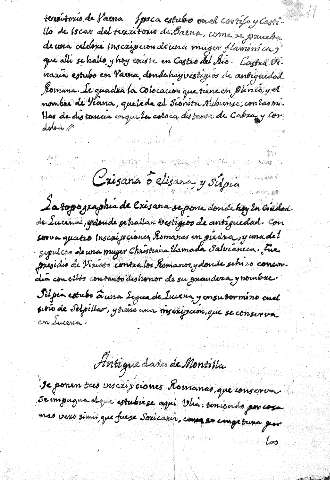 territorio de Varna Ipoca estubo en el cortijo y Casti-
llo de Iscar del territorio de Baena, como se prueba
de una celebre inscripcion de una muger flaminica, y
que alli se hallo y hoy existe en Castro del Rio. Castul Vi-
naria estubo en Varna, donde hay vestigios de antiguedad
Romana. Le quadra la colocacion que tiene en Plinio, y el
nombre de Viana, que le da el Nubiense, con las mi-
llas de distancia en que la coloca distante de Cabra, y Cor-
doba
Crisana ô elisana, y Silpia
La topographia de Crisana se pone donde hoy la Ciudad
de Lucena, y donde se hallan vestigios de antiguedad. Con
serva quatro Inscripciones Romanas en piedra, y una del
sepulcro de una muger Christiana llamada Salvianeia. Fue
presidio de Viriato contra los Romanos, y donde se hizo concor-
dia con ellos con tanto deshonor de su grandeza y nombre.
Silpia estubo á una Legua de Lucena, y en su termino en el
sitio de Selpillar, y tiene una inscripcion, que se conserva
en Lucena.
Antiguedades de Montilla
Se ponen tres inscripciones Romanas, que conserva
Se impugna el que estubiese aqui Ulia: teniendo por cosa
mas vero simil que fuese Soricaria, como se congetura por
los